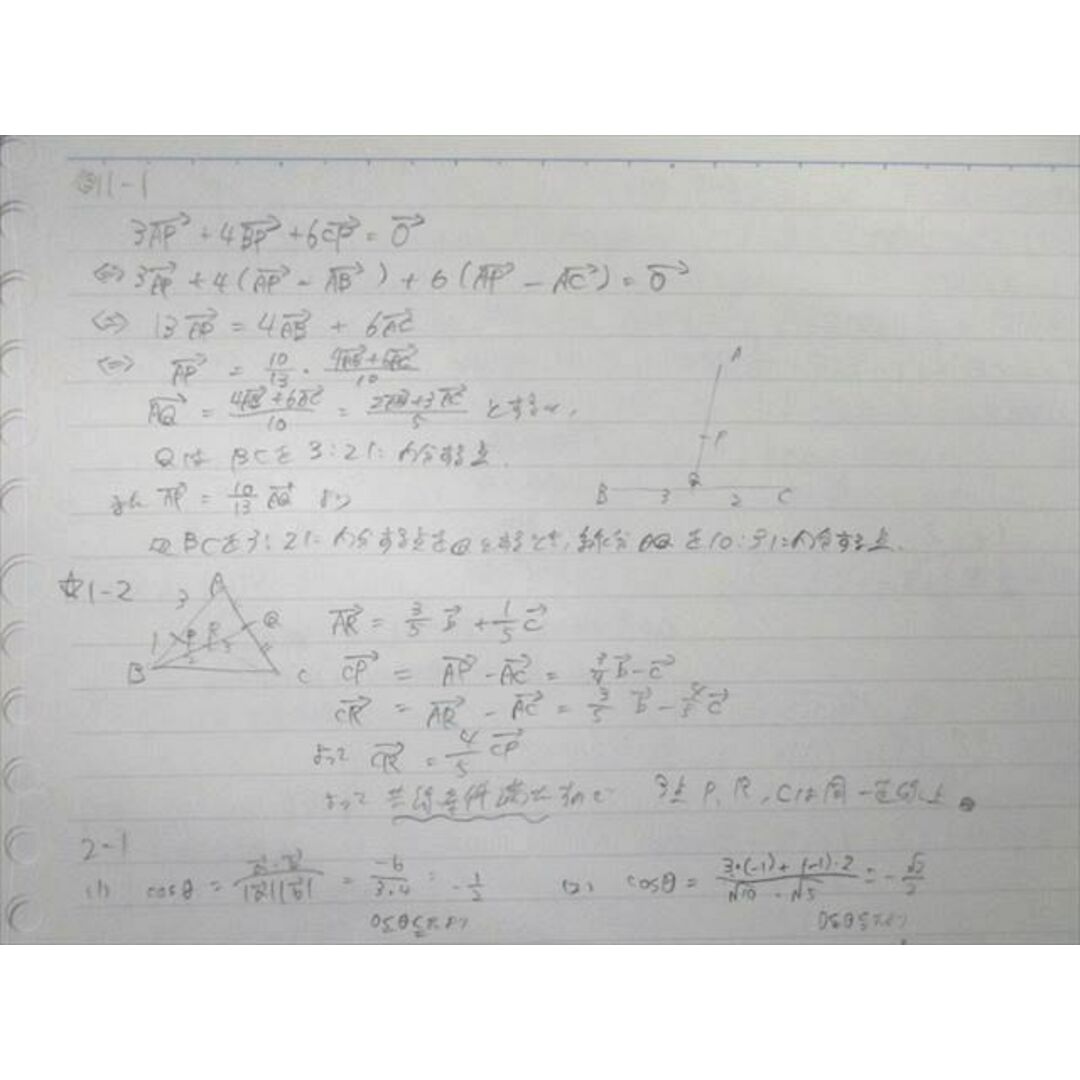 1-1
3AP→ + 4BP→ + 6CP→ = 0→
⇔ 3AP→ + 4(AP→ - AB→) + 6(AP→ - AC→) = 0→
⇔ 13AP→ = 4AB→ + 6AC→
⇔ AP→ = 10/13 · (4AB→ + 6AC→)/10
AQ→ = (4AB→ + 6AC→)/10 = (2AB→ + 3AC→)/5 とすると,
Qは BCを 3:2に内分する点.
また AP→ = 10/13 AQ→ より
BCを3:2に内分する点をQとするとき, 線分AQを10:3に内分する点.
A
P
B 3 Q 2 C
☆1-2
A
3
1 P R Q
B C
AR→ = 3/5 b→ + 1/5 c→
CP→ = AP→ - AC→ = 3/4 b→ - c→
CR→ = AR→ - AC→ = 3/5 b→ - 4/5 c→
よって CR→ = 4/5 CP→
よって 3点 P, R, Cは同一直線上。
2-1
(1) cosθ = a→·b→/|a→||b→| = -6/3·4 = -1/2
(2) cosθ = (3·(-1) + (-1)·2)/(√10 · √5) = -√2/2